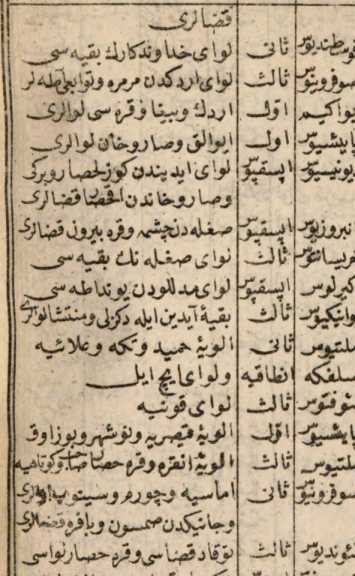 قضالری
ثانی لوای خداوندكارك بقیه سی
صوفرونیوس ثالث لوای اردكدن مرمره وتوابعی اطه لر
یواكیم اول اردك وبیغا وقره سی لوالری
پاییسیوس اول ایوالق وصاروخان لوالری
یونیسیوس ایپسقپوس لوای ایدیندن كوزلحصار وبركی
وصاروخاندن اقحصار قضالری
نیروزیوس ایپسقپوس صغله دن چشمه وقره بیرون قضالری
خریسانثوس ثالث لوای صغله نك بقیه سی
كیرلوس ایپسقپوس لوای مدللودن یونداطه سی
یوانیكیوس ثالث بقیۀ آیدین ایله دكزلی ومنتشا لوالری
ملتیوس ثانی الویۀ حمید وتكه وعلائیه
سلفكه انطاقیه ولوای ایچ ایل
ثالث لوای قونیه
پاییسیوس اول الویۀ قیصریه ونوشهر وبوزاوق
ملتیوس ثالث الویۀ انقره وقره حصار صاحب وكوتاهیه
سوفرونیوس ثانی اماسیه وچورم وسینوب لوالری
وجانیكدن صمسون وبافره قضالری
ثالث توقاد قضاسی وقره حصار لواسی